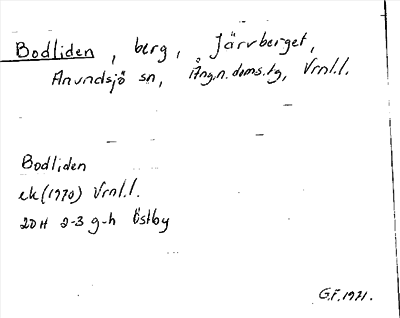 Bodliden, berg, Järvberget,
Anundsjö sn, Ång.n.doms.tg, Vrnl.l.
Bodliden
ek(1970) Vrnl.l.
20H 2-3 g-h Östby
G.F. 1971.